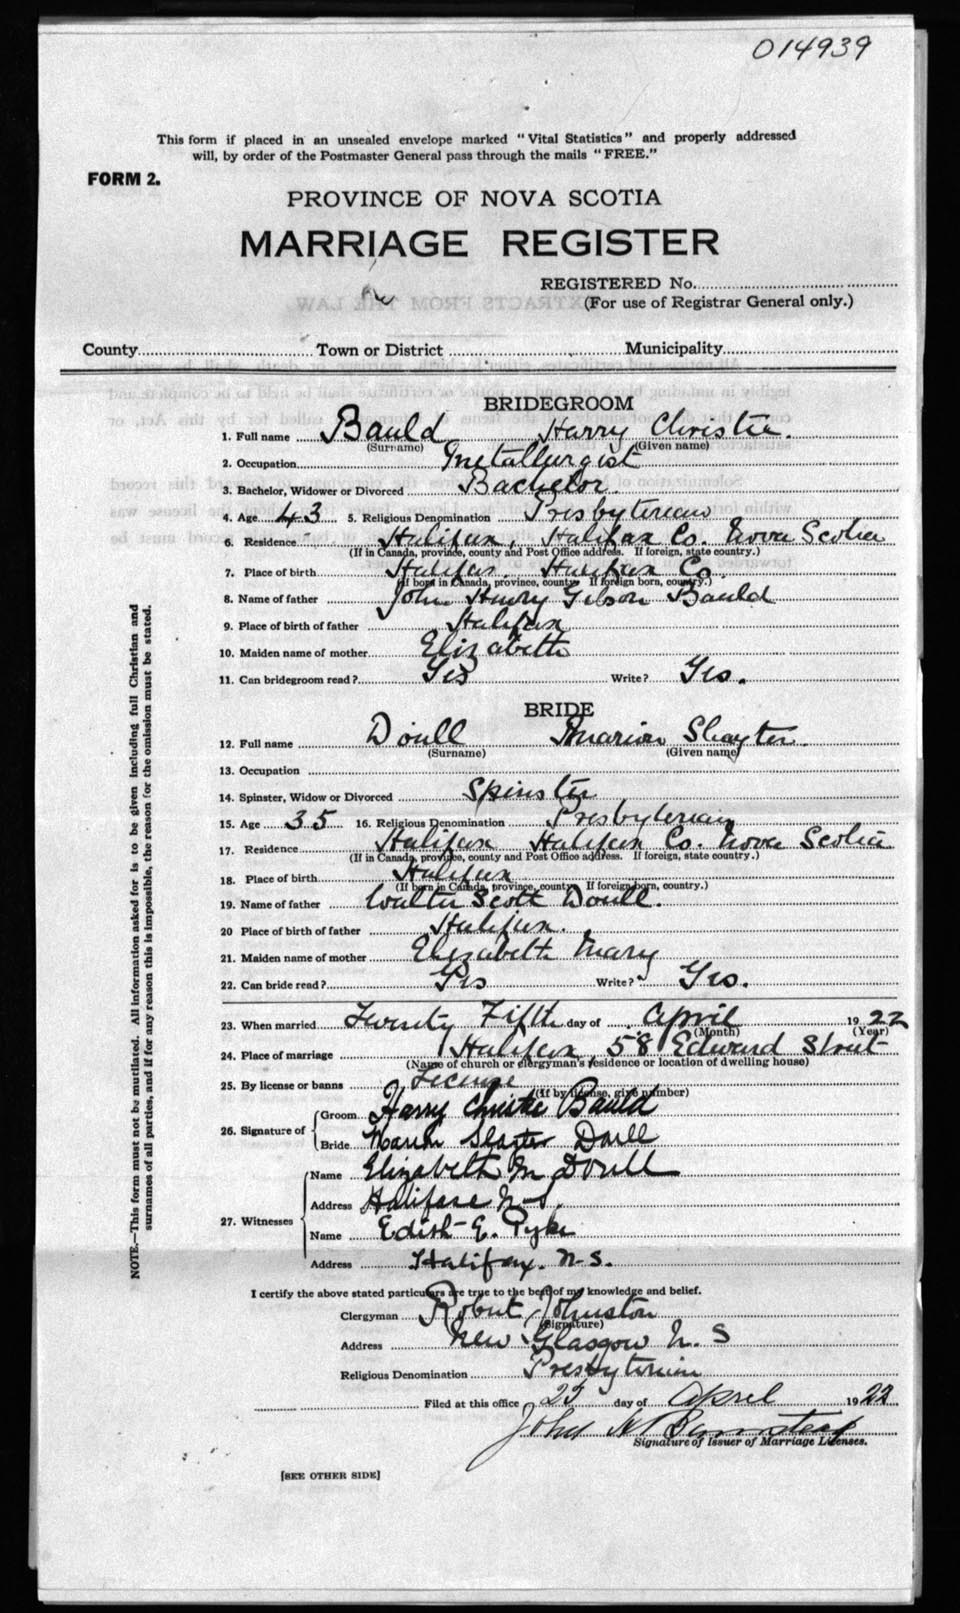 014939
This form if placed in an unsealed envelope marked "Vital Statistics" and properly addressed
will, by order of the Postmaster General pass through the mails "FREE."
FORM 2.
PROVINCE OF NOVA SCOTIA
MARRIAGE REGISTER
REGISTERED No.
(For use of Registrar General only.)
County Town or District Municipality
BRIDEGROOM
1. Full name Bauld Harry Christie.
(Surname) (Given name)
2. Occupation Metallurgist
3. Bachelor, Widower or Divorced Bachelor.
4. Age 43 5. Religious Denomination Presbyterian
6. Residence Halifax, Halifax Co. Nova Scotia
(If in Canada, province, county and Post Office address. If foreign, state country.)
7. Place of birth Halifax, Halifax Co.
(If born in Canada, province, county. If foreign born, country.)
8. Name of father John Henry Gibson Bauld
9. Place of birth of father Halifax
10. Maiden name of mother Elizabeth
11. Can bridegroom read? Yes Write? Yes.
BRIDE
12. Full name Doull Marion Slayter.
(Surname) (Given name)
13. Occupation
14. Spinster, Widow or Divorced Spinster
15. Age 35 16. Religious Denomination Presbyterian
17. Residence Halifax Halifax Co. Nova Scotia
(If in Canada, province, county and Post Office address. If foreign, state country.)
18. Place of birth Halifax
(If born in Canada, province, county. If foreign born, country.)
19. Name of father Walter Scott Doull.
20 Place of birth of father Halifax.
21. Maiden name of mother Elizabeth Mary
22. Can bride read? Yes Write? Yes.
23. When married Twenty Fifth day of April 1922
(Month) (Year)
24. Place of marriage Halifax 58 Edward Street
(Name of church or clergyman's residence or location of dwelling house)
25. By license or banns License
(If by license, give number)
26. Signature of
Groom Harry Christie Bauld
Bride Marion Slayter Doull
27. Witnesses
Name Elizabeth M Doull
Address Halifax N-S.
Name Edith E. Pyke
Address Halifax. N-S.
I certify the above stated particulars are true to the best of my knowledge and belief.
Clergyman Robert Johnston
(Signature)
Address New Glasgow N. S
Religious Denomination Presbyterian
Filed at this office 25 day of April 1922
John H Barnstead
Signature of Issuer of Marriage Licenses.
[SEE OTHER SIDE]
NOTE.—This form must not be mutilated. All information asked for is to be given including full Christian and
surnames of all parties, and if for any reason this is impossible, the reason for the omission must be stated.